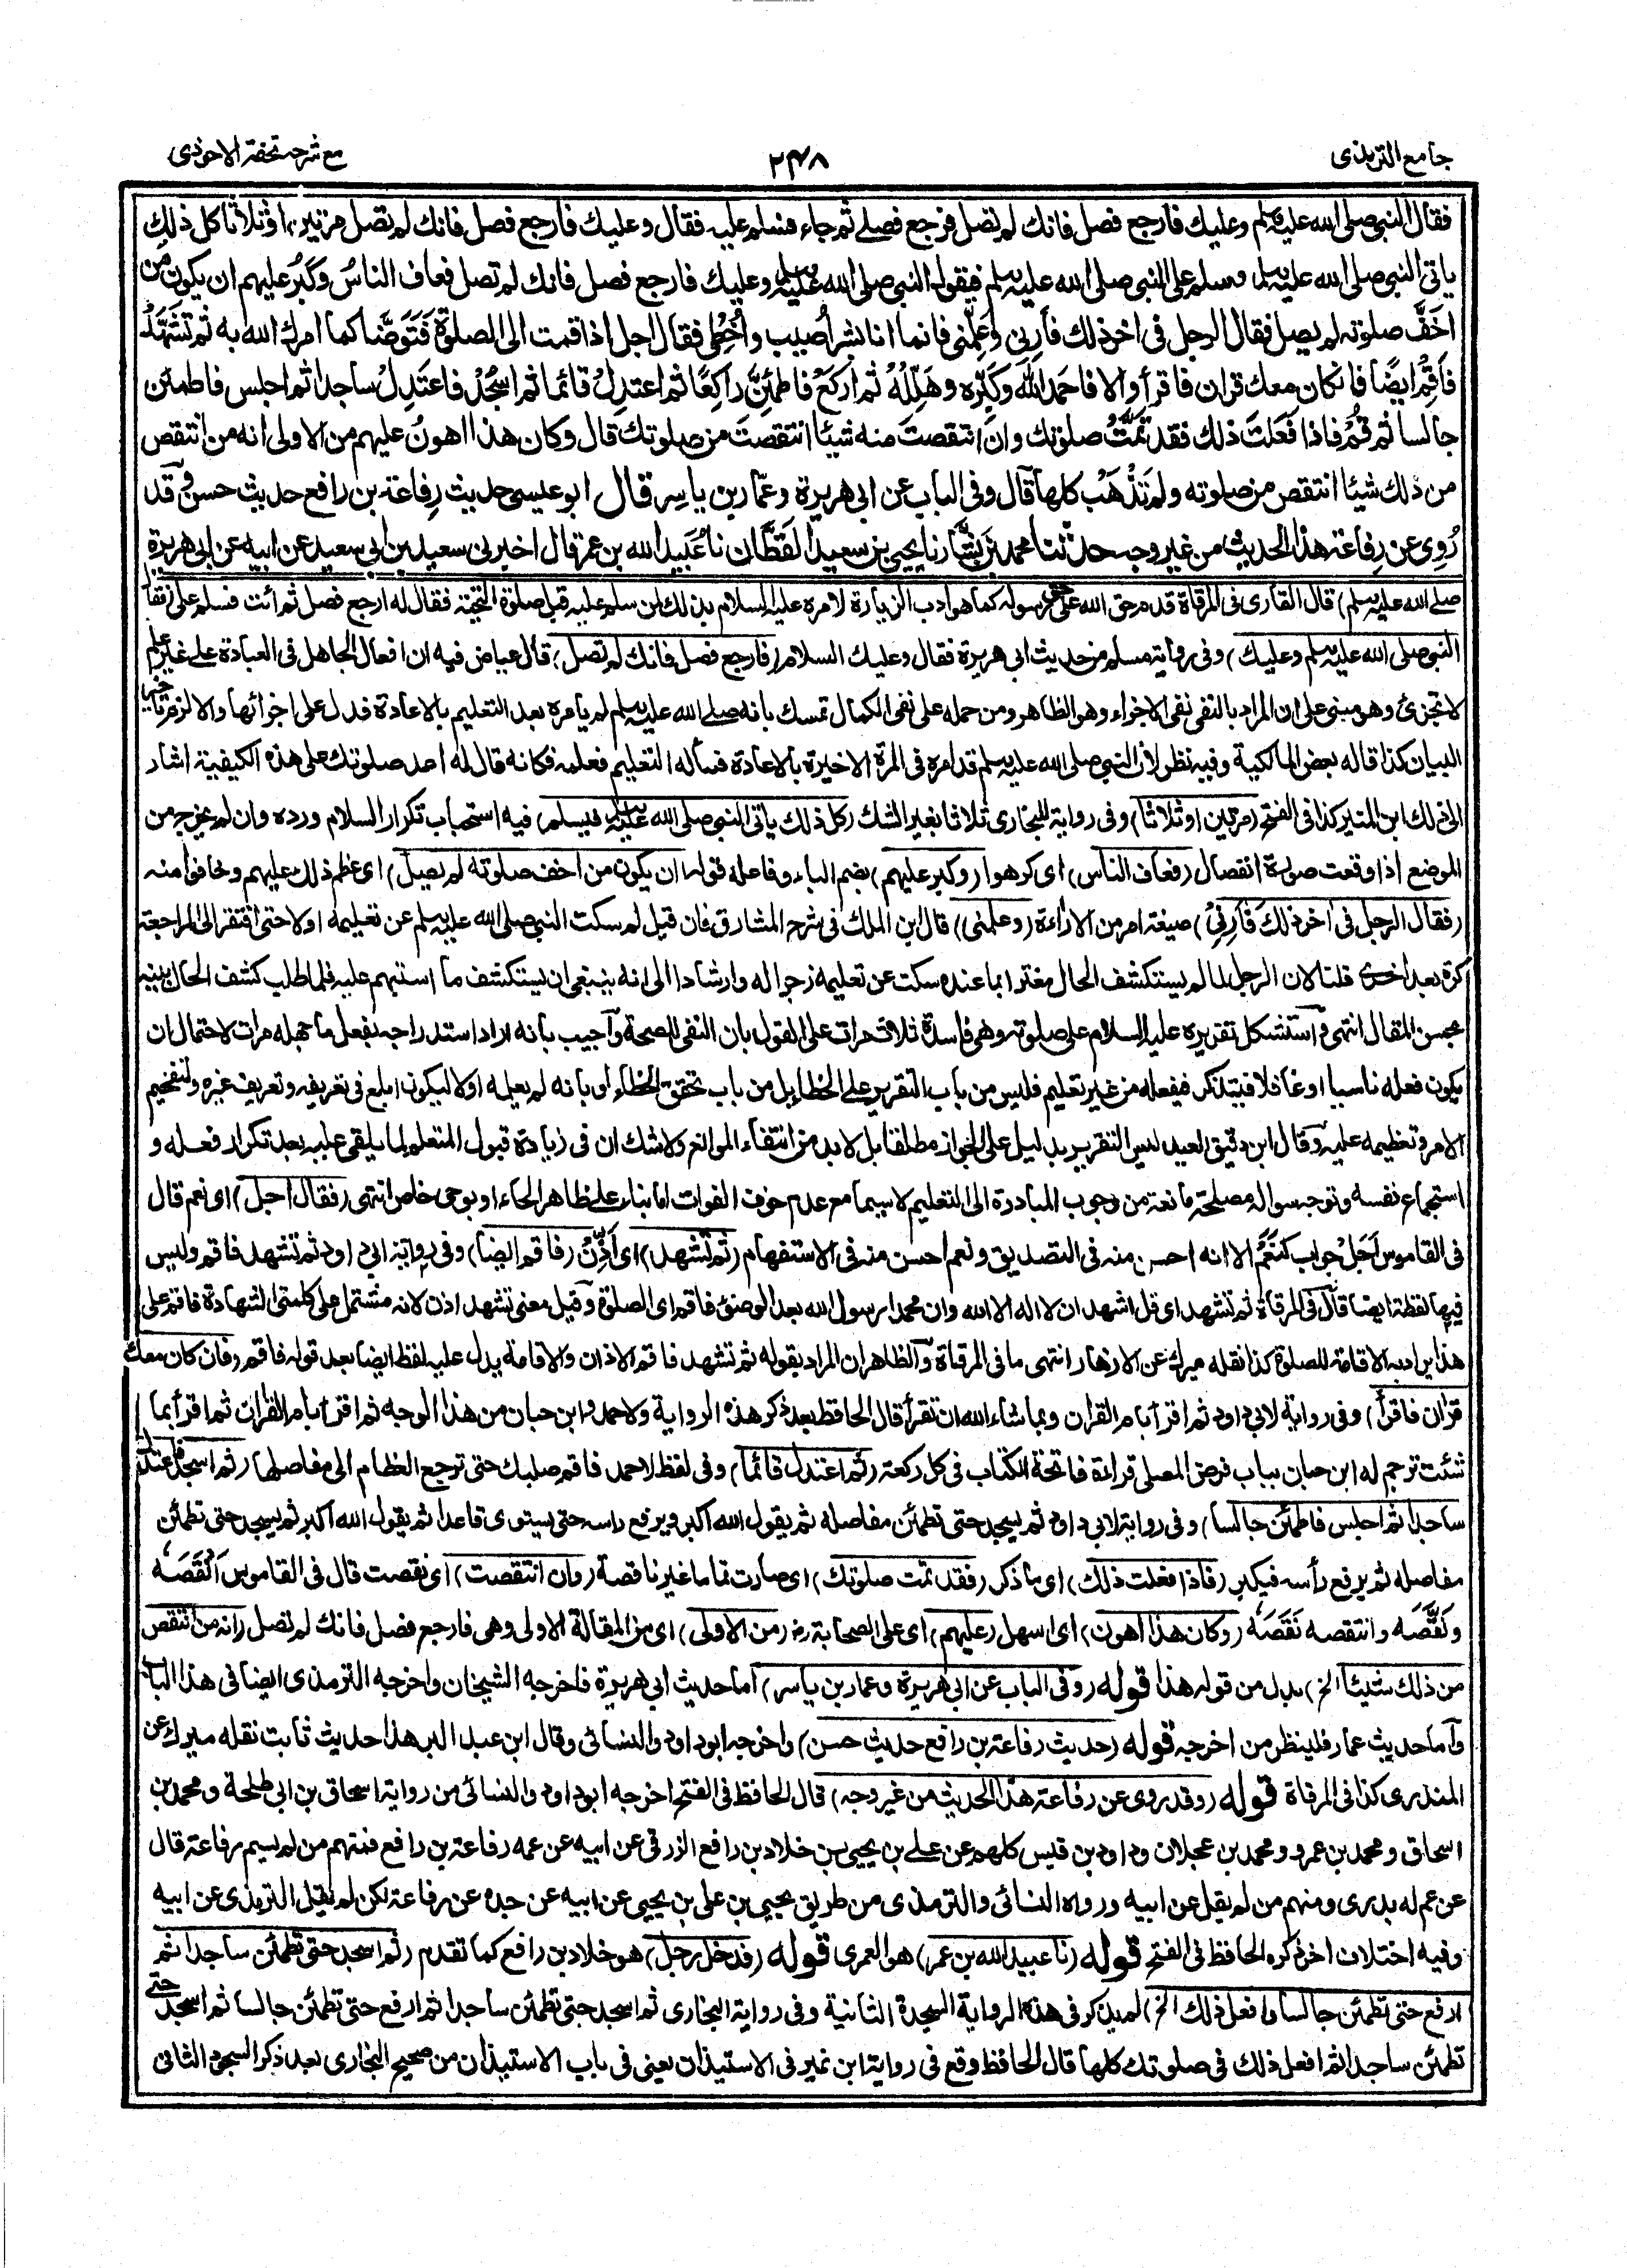 جامع الترمذى
٢٤٨
مع شرحه تحفة الاحوذى
فقال النبى صلى الله عليه وسلم وعليك فارجع فصل فانك لم تصل فرجع فصلى ثم جاء فسلم عليه فقال وعليك فارجع فصل فانك لم تصل مرتين او ثلاثا كل ذلك
ياتى النبى صلى الله عليه وسلم وسلم على النبى صلى الله عليه وسلم فيقول النبى صلى الله عليه وسلم وعليك فارجع فصل فانك لم تصل فعاف الناسُ وكَبُرَ عليهم ان يكون من
اَخَفَّ صلوته لم يصل فقال الرجل فى اخر ذلك فأرِنى وعَلِّمْنى فانما انا بشر اُصيب واُخْطِئ فقال اجل اذا قمت الى الصلوة فَتَوَضَّا كما امرك الله به ثم تَشَهَّدْ
فَاَقِمْ ايضًا فان كان معك قران فاقرأ والا فاحمَدِ اللهَ وكَبِّرْه وهَلِّلْهُ ثم اركَعْ فاطمئِنَّ راكِعًا ثم اعتدِلْ قائما ثم اسجُدْ فاعتَدِلْ ساجدا ثم اجلس فاطمئن
جالسا ثم قُمْ فاذا فَعَلتَ ذلك فقد تَمَّتْ صلوتك وان انتقصتَ منه شيئا انتقصتَ من صلوتك قال وكان هذا اهونُ عليهم من الاولى انه من انتقص
من ذلك شيئا انتقص من صلوته ولم تَذْهَبْ كلها قال وفى الباب عن ابى هريرة وعمّار بن ياسر قال ابو عيسى حديث رِفاعة بن رافع حديث حسن وقد
رُوِى عن رِفاعة هذا الحديث من غير وجه حدثنا محمد بن بَشَّار نا يحيى بن سعيد القَطَّان نا عُبَيد الله بن عمر قال اخبرنى سعيد بن ابى سعيد عن ابيه عن ابى هريرة
صلى الله عليه وسلم) قال القارى فى المرقاة قدم حق الله على حق رسوله كما هو ادب الزيارة لامره عليه السلام بذلك لمن سلم عليه قبل صلوة التحية فقال له ارجع فصل ثم ائت فسلم على (فقال
النبى صلى الله عليه وسلم وعليك) وفى رواية مسلم من حديث ابى هريرة فقال وعليك السلام (فارجع فصل فانك لم تصل) قال عياض فيه ان افعال الجاهل فى العبادة على غير علم
لا تجزئ وهو مبنى على ان المراد بالنفى نفى الاجزاء وهو الظاهر ومن حمله على نفى الكمال تمسك بانه صلى الله عليه وسلم لم يامره بعد التعليم بالاعادة فدل على اجزائها والا لزم تاخير
البيان كذا قاله بعض المالكية وفيه نظر لان النبى صلى الله عليه وسلم قد امره فى المرة الاخيرة بالاعادة فسأله التعليم فعلمه فكانه قال له اعد صلوتك على هذه الكيفية اشار
الى ذلك ابن المنير كذا فى الفتح (مرتين او ثلاثا) وفى رواية للبخارى ثلاثا بغير الشك (كل ذلك ياتى النبى صلى الله عليه وسلم فيسلم) فيه استحباب تكرار السلام ورده وان لم يخرج من
الموضع اذا وقعت صورة انفصال (فعاف الناس) اى كرهوا (وكبر عليهم) بضم الباء وفاعله قوله (ان يكون من اخف صلوته لم يصل) اى عظم ذلك عليهم وخافوا منه
(فقال الرجل فى اخر ذلك فأرنى) صيغة امر من الاراءة (وعلمنى) قال ابن الملك فى شرح المشارق فان قيل لم سكت النبى صلى الله عليه وسلم عن تعليمه اولا حتى افتقر الى المراجعة
كرة بعد اخرى قلنا لان الرجل لما لم يستكشف الحال مغترا بما عنده سكت عن تعليمه زجرا له وارشادا الى انه ينبغى ان يستكشف ما استبهم عليه فلما طلب كشف الحال بينه
بحسن المقال انتهى واستشكل تقريره عليه السلام على صلوته وهى فاسدة ثلاث مرات على القول بان النفى للصحة وأجيب بانه اراد استدراجه بفعل ما جهله مرات لاحتمال ان
يكون فعله ناسيا او غافلا فيتذكر فيفعله من غير تعليم فليس من باب التقرير على الخطا بل من باب تحقق الخطاء او بانه لم يعلمه اولا ليكون ابلغ فى تعريفه وتعريف غيره ولتفخيم
الامر وتعظيمه عليه وقال ابن دقيق العيد ليس التقرير بدليل على الجواز مطلقا بل لا بد من انتفاء الموانع ولا شك ان فى زيادة قبول المتعلم لما يلقى عليه بعد تكرار فعله و
استجماع نفسه وتوجه سواله مصلحة مانعة من وجوب المبادرة الى التعليم لا سيما مع عدم خوف الفوات اما بناء على ظاهر الحاء او بوحى خاص انتهى (فقال اجل) اى نعم قال
فى القاموس اَجَلْ جواب كنَعَمْ الا انه احسن منه فى التصديق ونعم احسن منه فى الاستفهام (ثم تشهد) اى اَذِّنْ (فاقم ايضا) وفى رواية ابى داود ثم تشهد فاقم وليس
فيها لفظة ايضا قال فى المرقاة ثم تشهد اى قل اشهد ان لا اله الا الله وان محمدا رسول الله بعد الوضوء فاقم اى الصلوة وقيل معنى تشهد اذن لانه مشتمل على كلمتى الشهادة فاقم على
هذا يراد به الاقامة للصلوة كذا نقله ميرك عن الازهار انتهى ما فى المرقاة والظاهر ان المراد بقوله ثم تشهد فاقم الاذان والاقامة يدل عليه لفظ ايضا بعد قوله فاقم (فان كان معك
قران فاقرأ) وفى رواية لابى داود ثم اقرأ بام القران وبما شاء الله ان تقرأ قال الحافظ بعد ذكر هذه الرواية ولاحمد وابن حبان من هذا الوجه ثم اقرأ بام القران ثم اقرأ بما
شئت ترجم له ابن حبان بباب فرض المصلى قراءة فاتحة الكتاب فى كل ركعة (ثم اعتدل قائما) وفى لفظ لاحمد فاقم صلبك حتى ترجع العظام الى مفاصلها (ثم اسجد فاعتدل
ساجدا ثم اجلس فاطمئن جالسا) وفى رواية لابى داود ثم يسجد حتى تطمئن مفاصله ثم يقول الله اكبر ويرفع راسه حتى يستوى قاعدا ثم يقول الله اكبر ثم يسجد حتى تطمئن
مفاصله ثم يرفع رأسه فيكبر (فاذا فعلت ذلك) اى ما ذكر (فقد تمت صلوتك) اى صارت تماما غير ناقصة (وان انتقصت) اى نقصت قال فى القاموس اَنْقَصَه
ونَقَّصَه وانتقصه نَقَصَه (وكان هذا اهون) اى اسهل (عليهم) اى على الصحابة رض (من الاولى) اى من المقالة الاولى وهى فارجع فصل فانك لم تصل (انه من انتقص
من ذلك شيئا الخ) بدل من قوله هذا قوله (وفى الباب عن ابى هريرة وعمار بن ياسر) اما حديث ابى هريرة فاخرجه الشيخان واخرجه الترمذى ايضا فى هذا الباب
واما حديث عمار فلينظر من اخرجه قوله (حديث رفاعة بن رافع حديث حسن) واخرجه ابو داود والنسائى وقال ابن عبد البر هذا حديث ثابت نقله ميرك عن
المنذرى كذا فى المرقاة قوله (وقد روى عن رفاعة هذا الحديث من غير وجه) قال الحافظ فى الفتح اخرجه ابو داود والنسائى من رواية اسحاق بن ابى طلحة ومحمد بن
اسحاق ومحمد بن عمرو ومحمد بن عجلان وداود بن قيس كلهم عن على بن يحيى بن خلاد بن رافع الزرقى عن ابيه عن عمه رفاعة بن رافع فمنهم من لم يسم رفاعة قال
عن عم له بدرى ومنهم من لم يقل عن ابيه ورواه النسائى والترمذى من طريق يحيى بن على بن يحيى عن ابيه عن جده عن رفاعة لكن لم يقل الترمذى عن ابيه
وفيه اختلاف اخر ذكره الحافظ فى الفتح قوله (نا عبيد الله بن عمر) هو العمرى قوله (فدخل رجل) هو خلاد بن رافع كما تقدم (ثم اسجد حتى تطمئن ساجدا ثم
ارفع حتى تطمئن جالسا وافعل ذلك الخ) لم يذكر فى هذه الرواية السجدة الثانية وفى رواية البخارى ثم اسجد حتى تطمئن ساجدا ثم ارفع حتى تطمئن جالسا ثم اسجد حتى
تطمئن ساجدا ثم افعل ذلك فى صلوتك كلها قال الحافظ وقع فى رواية ابن نمير فى الاستيذان يعنى فى باب الاستيذان من صحيح البخارى بعد ذكر السجود الثانى